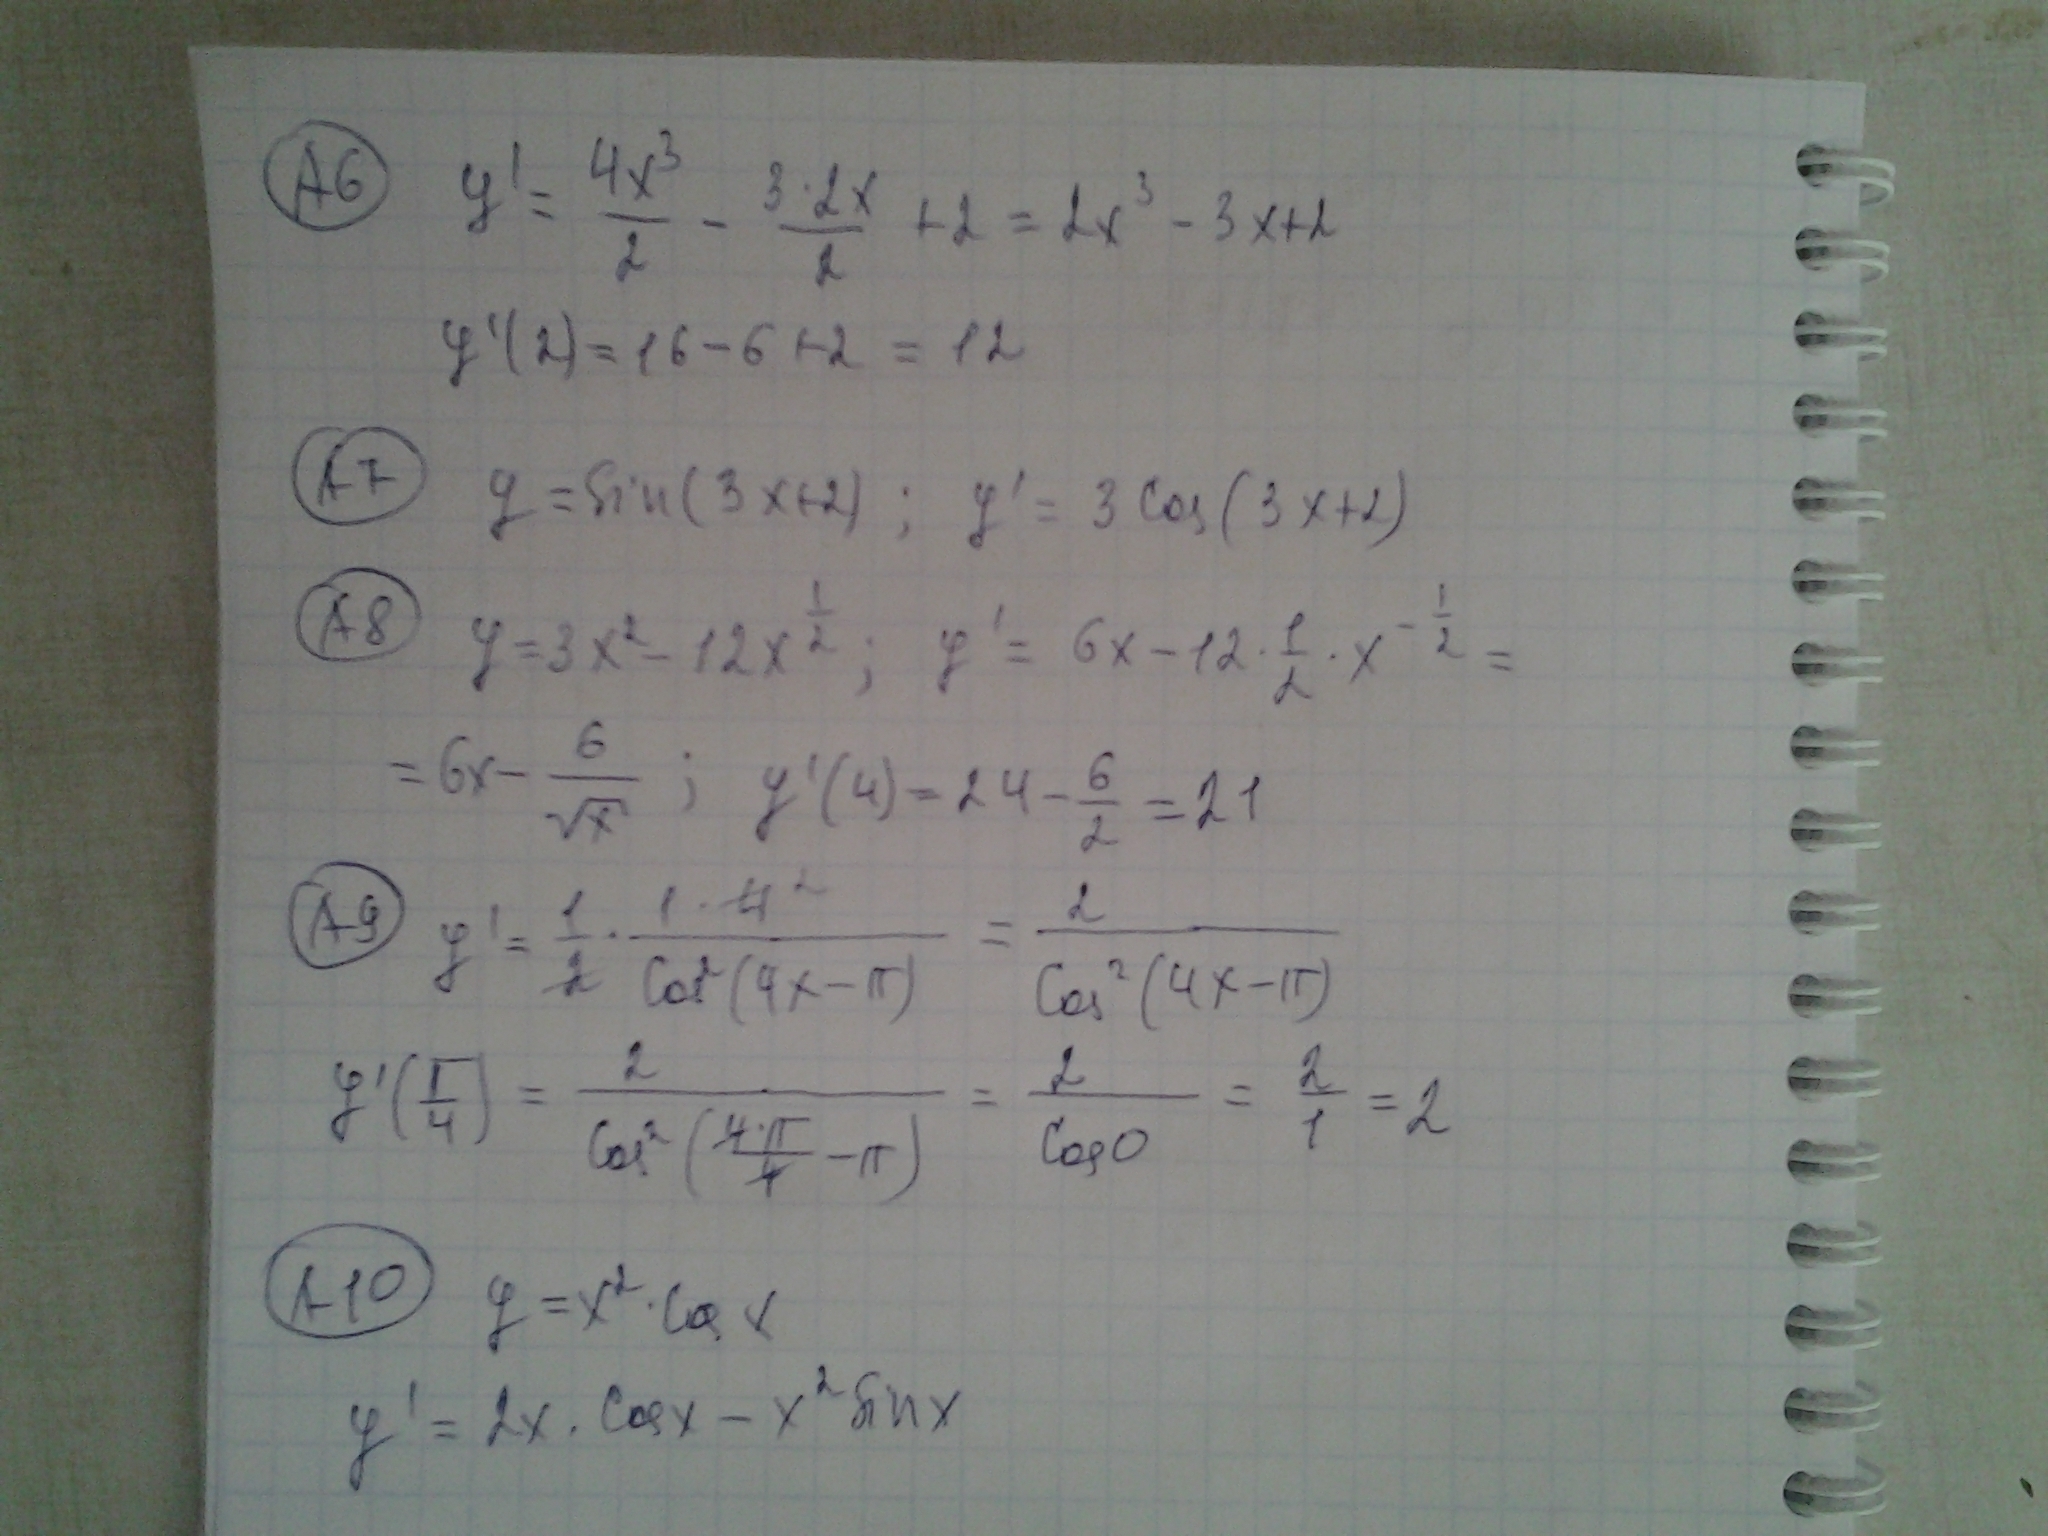 A6 y' = 4x³/2 - 3·2x/2 + 2 = 2x³ - 3x+2
y'(2) = 16 - 6 + 2 = 12
A7 y = sin(3x+2) ; y' = 3 cos(3x+2)
A8 y = 3x² - 12x^(1/2) ; y' = 6x - 12 · 1/2 · x^(-1/2) =
= 6x - 6/√x ; y'(4) = 24 - 6/2 = 21
A9 y' = 1/2 · 1·4²/cos²(4x-π) = 2/cos²(4x-π)
y'(π/4) = 2/cos²(4·π/4 - π) = 2/cos0 = 2/1 = 2
A10 y = x² · cos x
y' = 2x · cosx - x² sin x